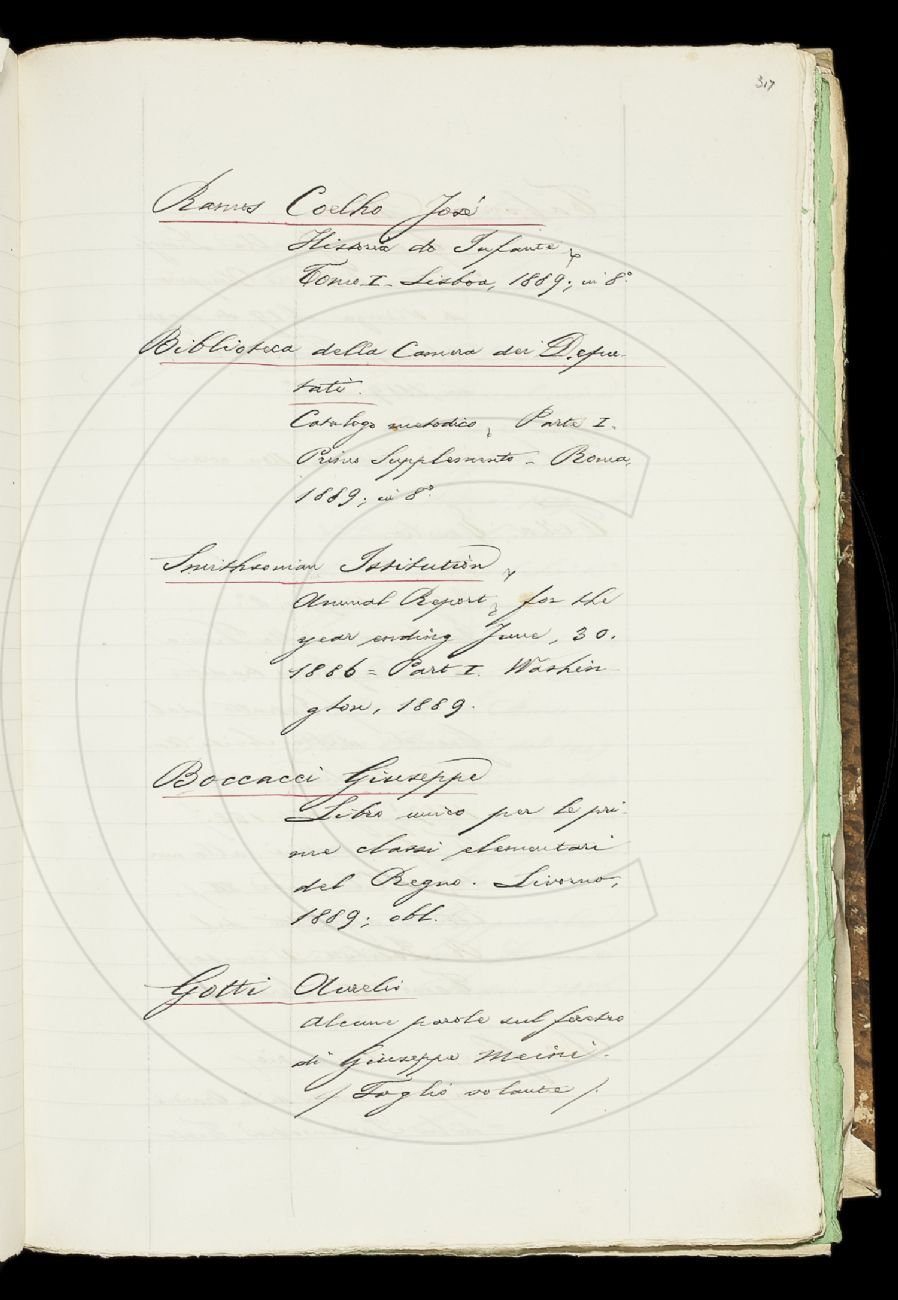 317
Ramos Coelho José
Historia do Infante,
Tomo I - Lisboa, 1889; in 8°
Biblioteca della Camera dei Depu-
tati.
Catalogo metodico, Parte I.
Primo Supplemento - Roma,
1889; in 8°
Smithsonian Istitution,
Annual Report, for the
year ending June, 30.
1886 = Part I. Washin-
gton, 1889.
Boccacci Giuseppe
Libro unico per le pri-
me classi elementari
del Regno. Livorno,
1889; obl.
Gotti Aurelio
Alcune parole sul feretro
di Giuseppe Meini.
/ Foglio volante /